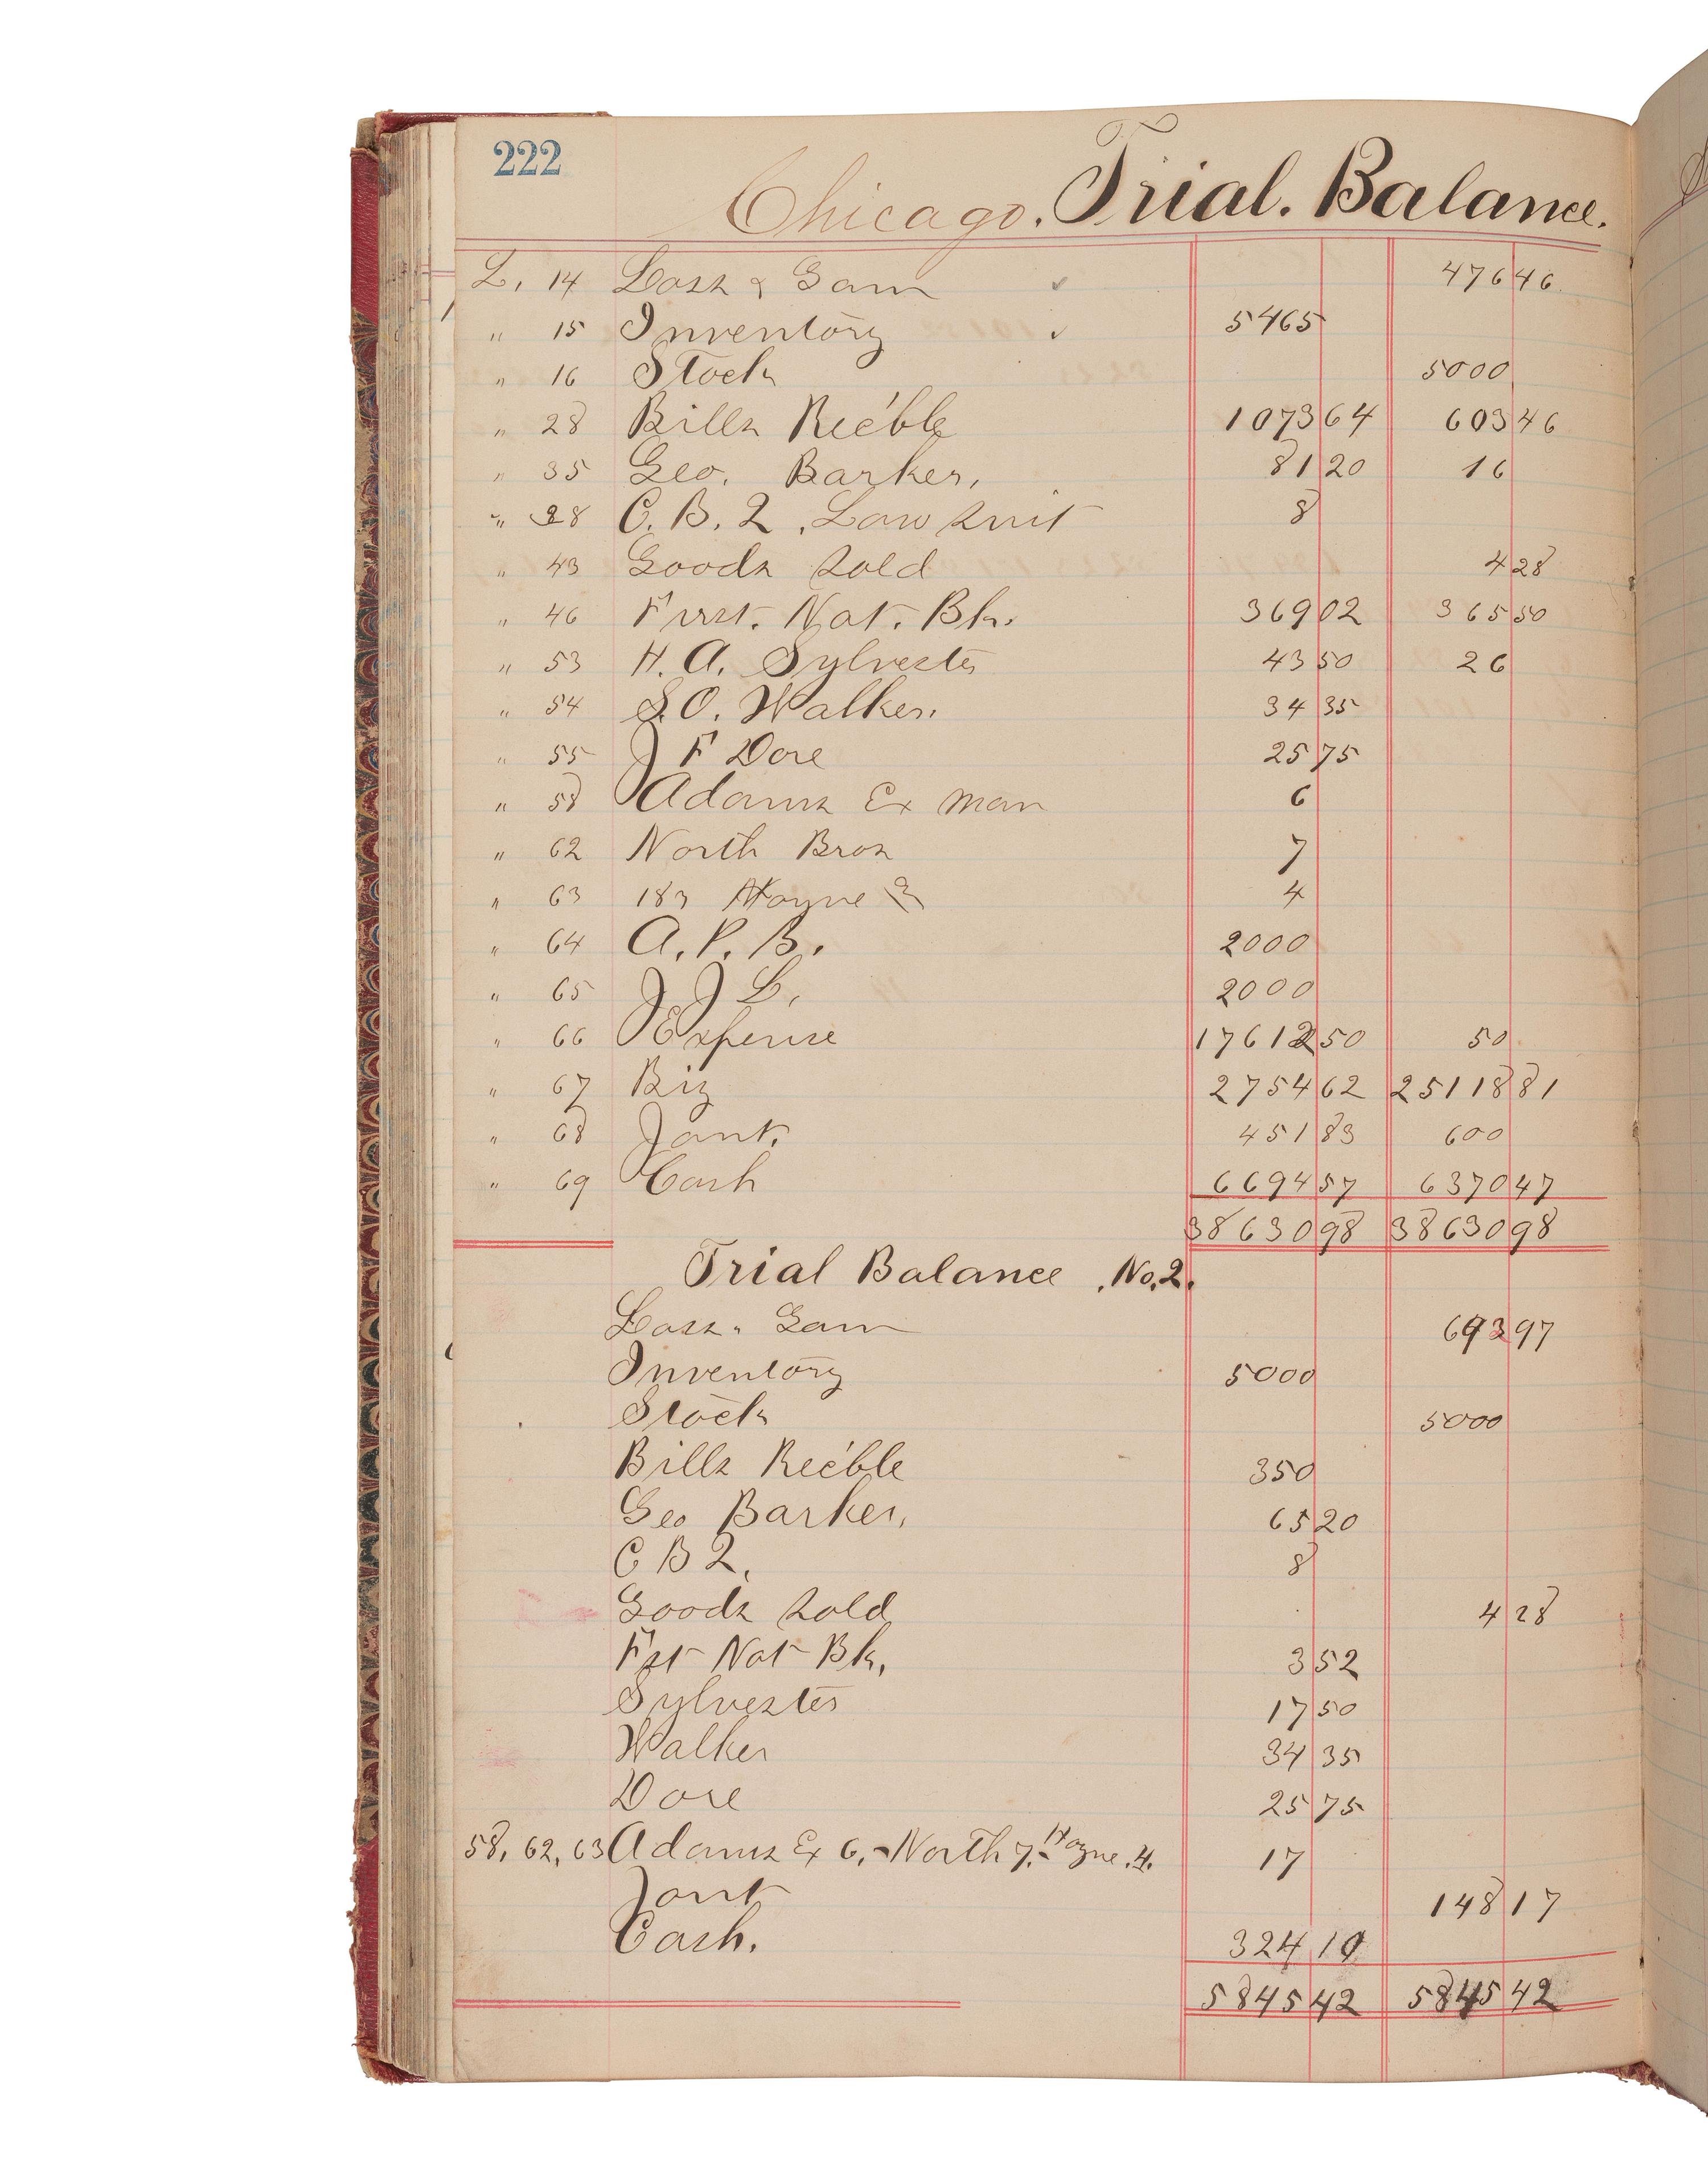 222
Chicago. Trial. Balance.
L. 14 Loss & Gain ✓ 476 46
" 15 Inventory ✓ 5465
" 16 Stock 5000
" 28 Bills Rec'ble 1073 64 603 46
" 35 Geo. Barker, 81 20 16
" 28 C. B. 2. Law Suit 8
" 43 Goods Sold 4 28
" 46 First. Nat. Bk. 369 02 365 50
" 53 H. A. Sylvester 43 50 26
" 54 S. O. Walker. 34 35
" 55 J F Dore 25 75
" 58 Adams Ex man 6
" 62 North Bros 7
" 63 183 Hoyne 4
" 64 A. P. B. 2000
" 65 J J L. 2000
" 66 Expense 17612 50 50
" 67 Biz 2754 62 25118 81
" 68 Jant. 451 83 600
" 69 Cash 6694 57 6370 47
38630 98 38630 98
Trial Balance . No. 2.
Loss " Gain 693 97
Inventory 5000
Stock 5000
Bills Rec'ble 350
Geo Barker, 65 20
C B 2. 8
Goods Sold 4 28
Fst Nat Bk, 3 52
Sylvester 17 50
Walker 34 35
Dore 25 75
58, 62, 63 Adams Ex 6, - North 7. - Hoyne . 4. 17
Jant 148 17
Cash. 324 10
5845 42 5845 42